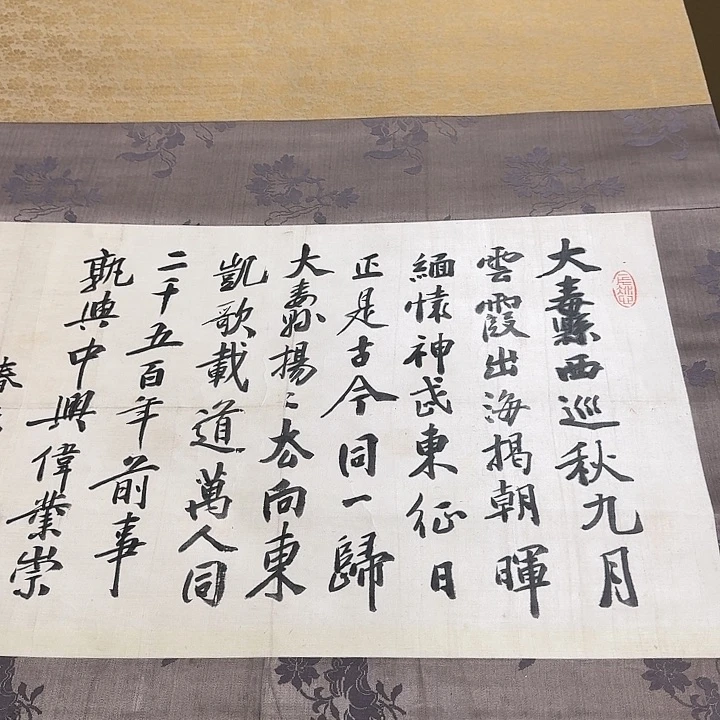 大纛西巡秋九月
雲霞出海揭朝暉
緬懷神武東征日
正是古今同一歸
大纛揚〻去向東
凱歌載道萬人同
二千五百年前事
孰與中興偉業崇
春